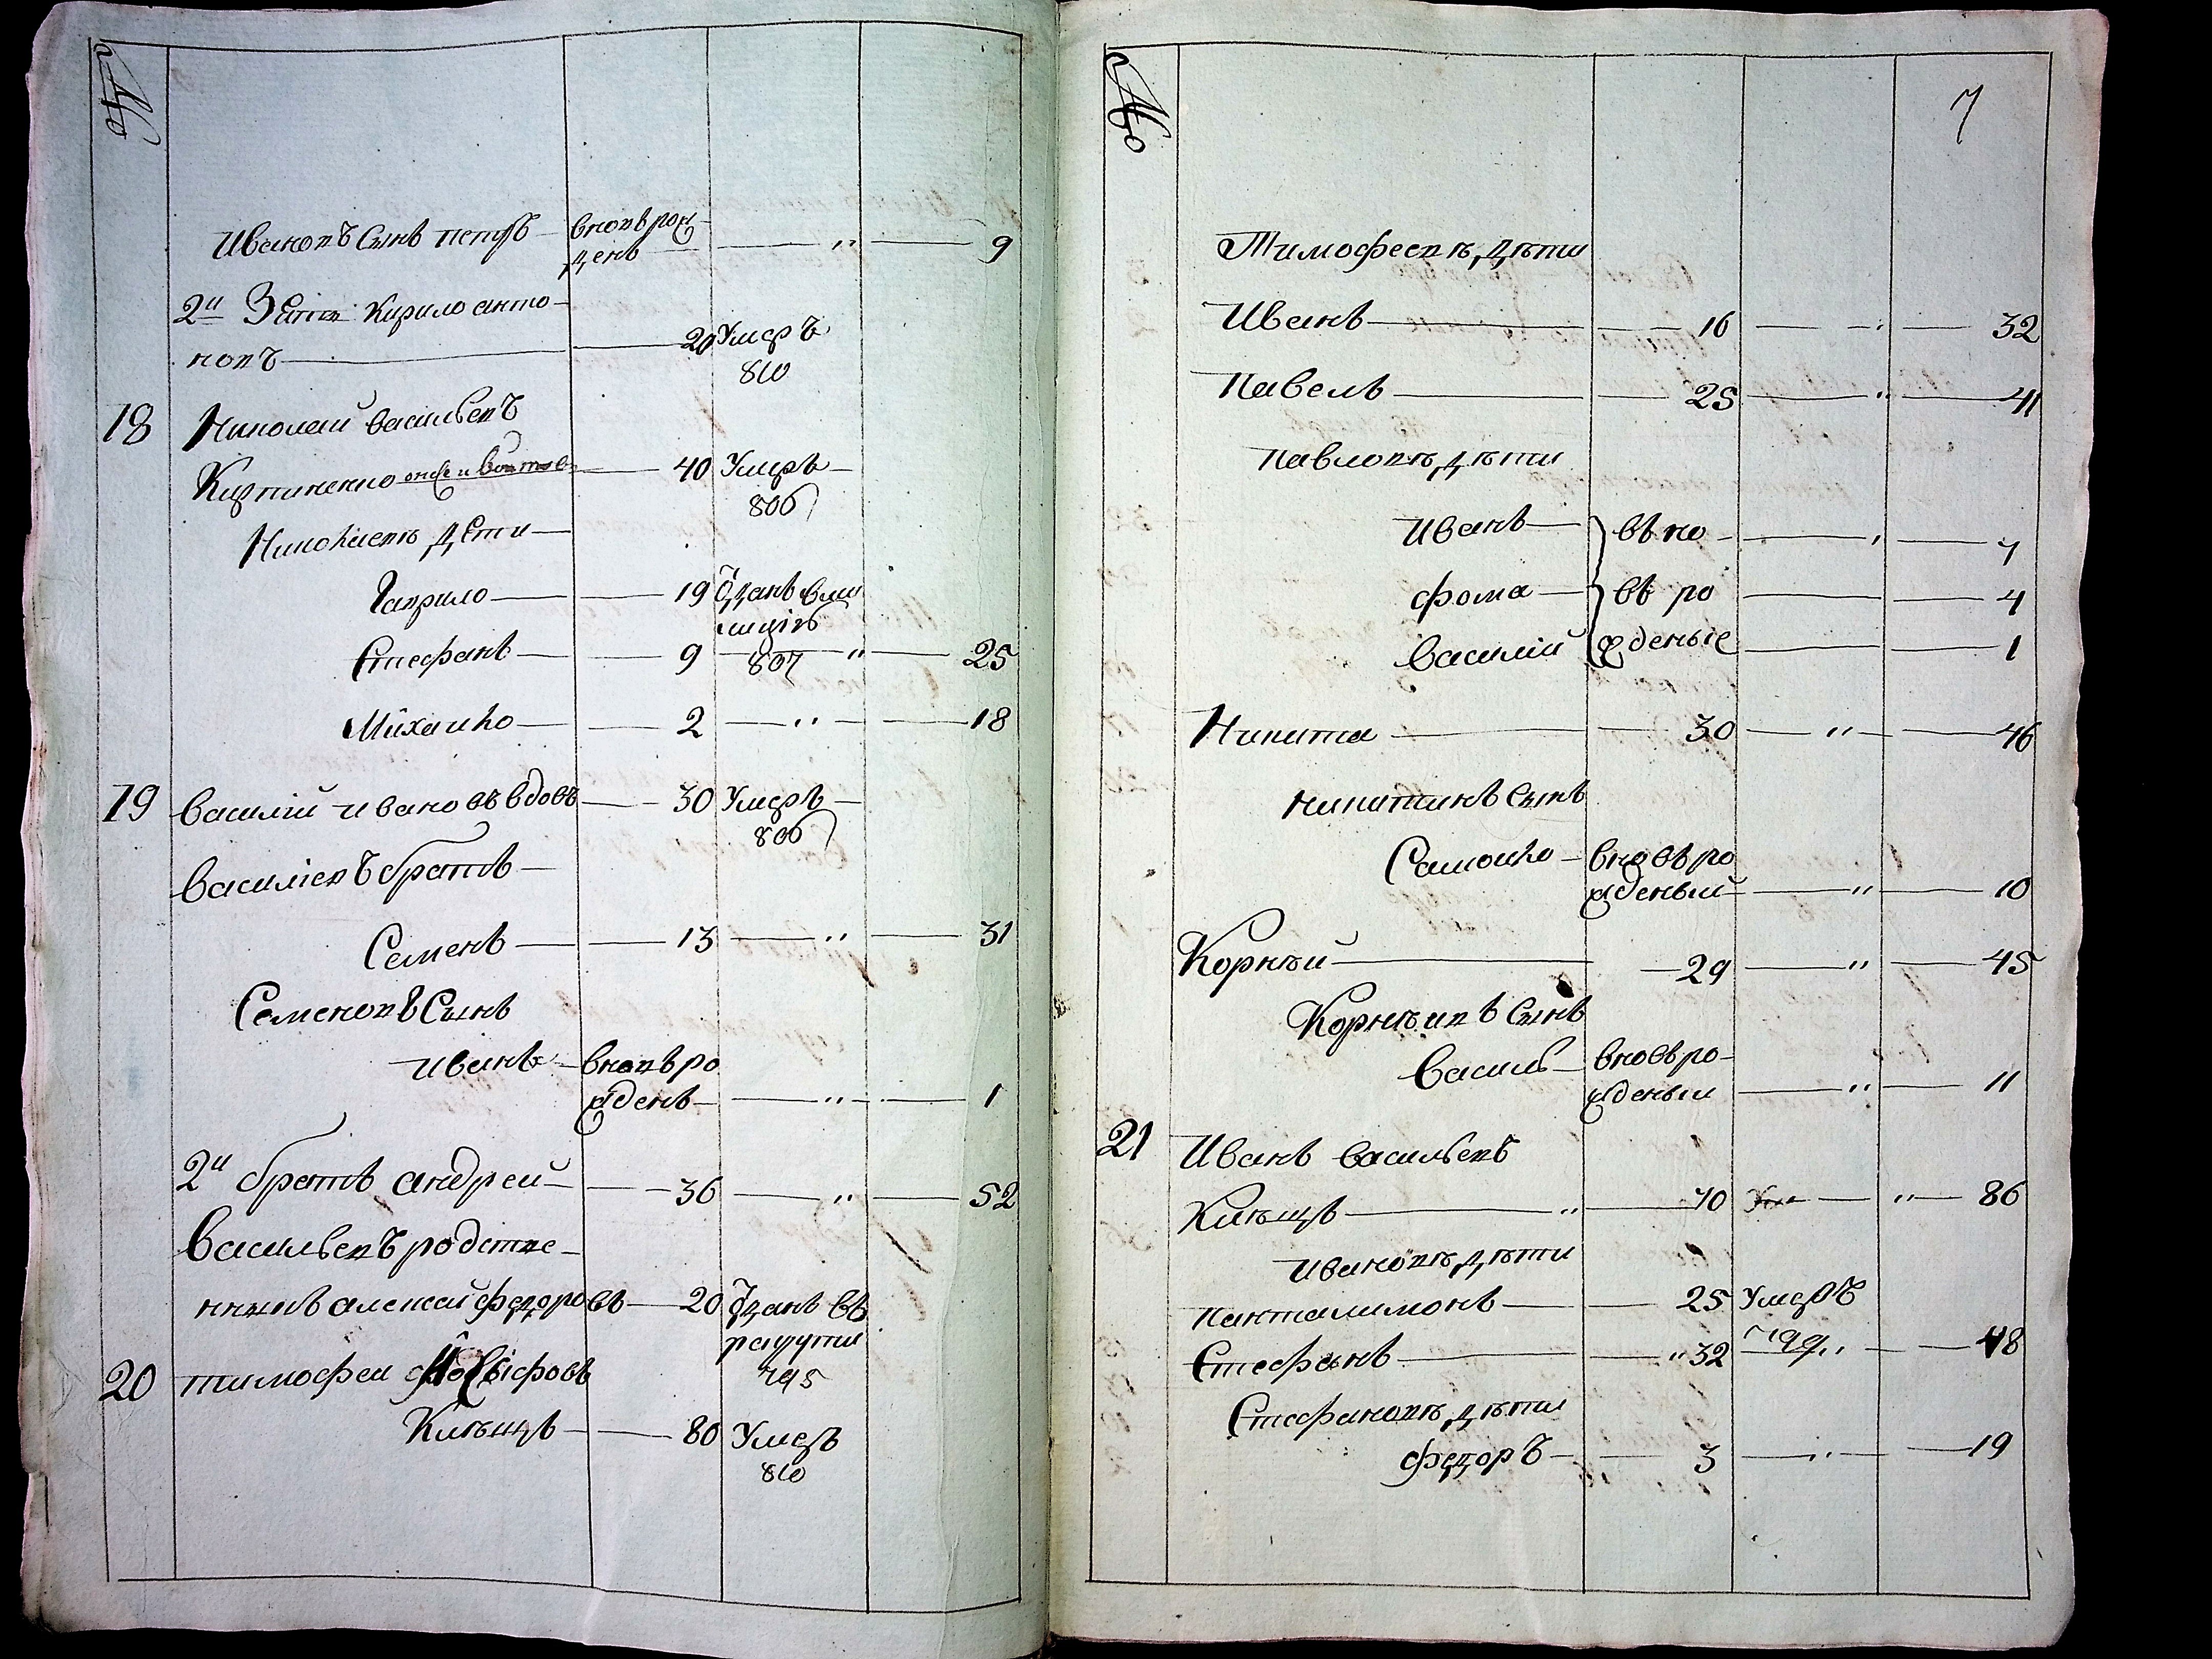 №
Ивановъ Сынъ петръ вновь рож 9
денъ
2й Зять Кирило анто
новъ 20 Умеръ
810
18 Николай васильевъ
Кирпиченко онже и 40 Умеръ
806
Николаевы дети
Гаврило 19 Отданъ вми
лицiю
Стефанъ 9 807 " 25
Михаило 2 " 18
19 василiй ивановъ вдовъ 30 Умеръ
806
василiевъ братъ
Семенъ 13 " 31
Семеновъ Сынъ
иванъ вновь ро
жденъ " 1
2й братъ андрей 36 " 52
васильевъ родстве
нникъ алексей федоровъ 20 Отданъ въ
рекруты
20 тимофей 795
Клѣщъ 80 Умеръ
810
№ 7
Тимофеевы дѣти
Иванъ 16 " 32
Павелъ 25 " 41
павловы дѣти
иванъ въ но 7
фома въ ро 4
василiй жденые 1
Никита 30 " 46
никитинъ Сынъ
Самоило вновь ро
жденый " 10
Корнѣй 29 " 45
Корнѣивъ Сынъ
василь вновь ро
жденый " 11
21 Иванъ васильевъ
Клѣщъ " 70 Уме " 86
ивановы дѣти
панталимонъ 25 Умеръ
Стефанъ " 32 799 " 48
Стефановы дѣти
федоръ 3 " 19